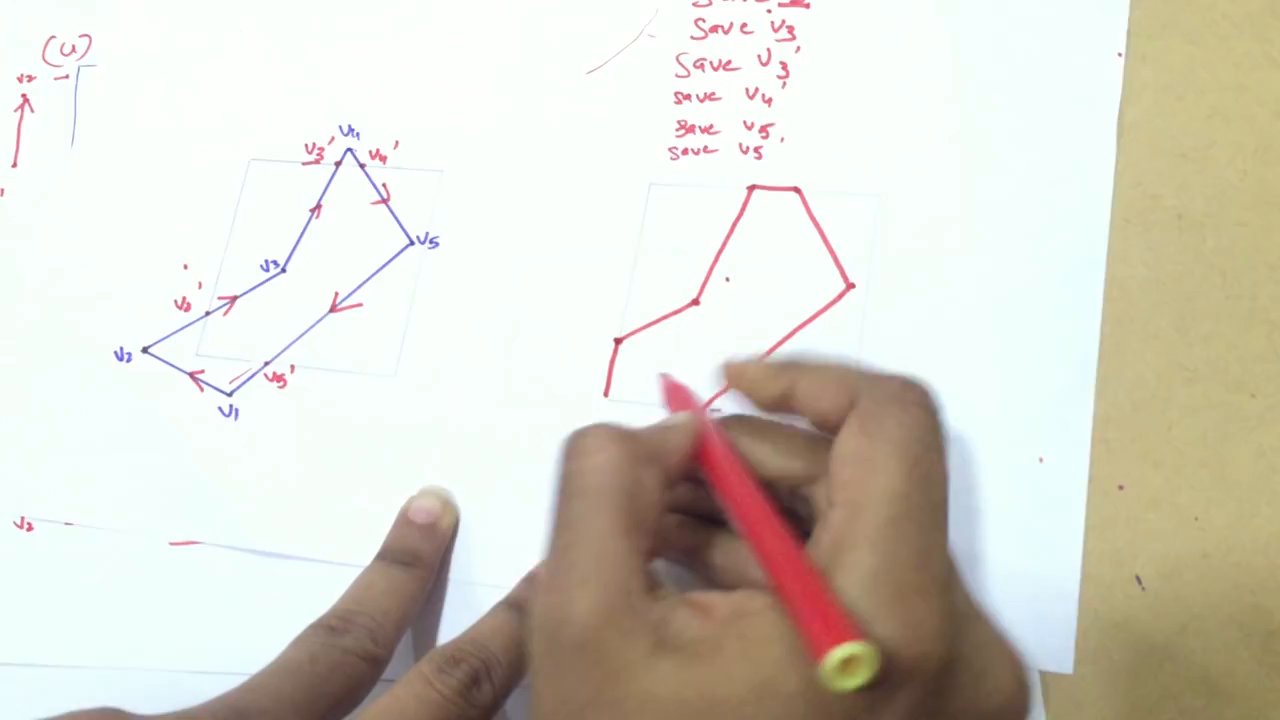 save v3
save v3'
save v4'
save v5
save v5'
(4)
v2
v4
v3'
v4'
v5
v3
v2'
v2
v5'
v1
v2